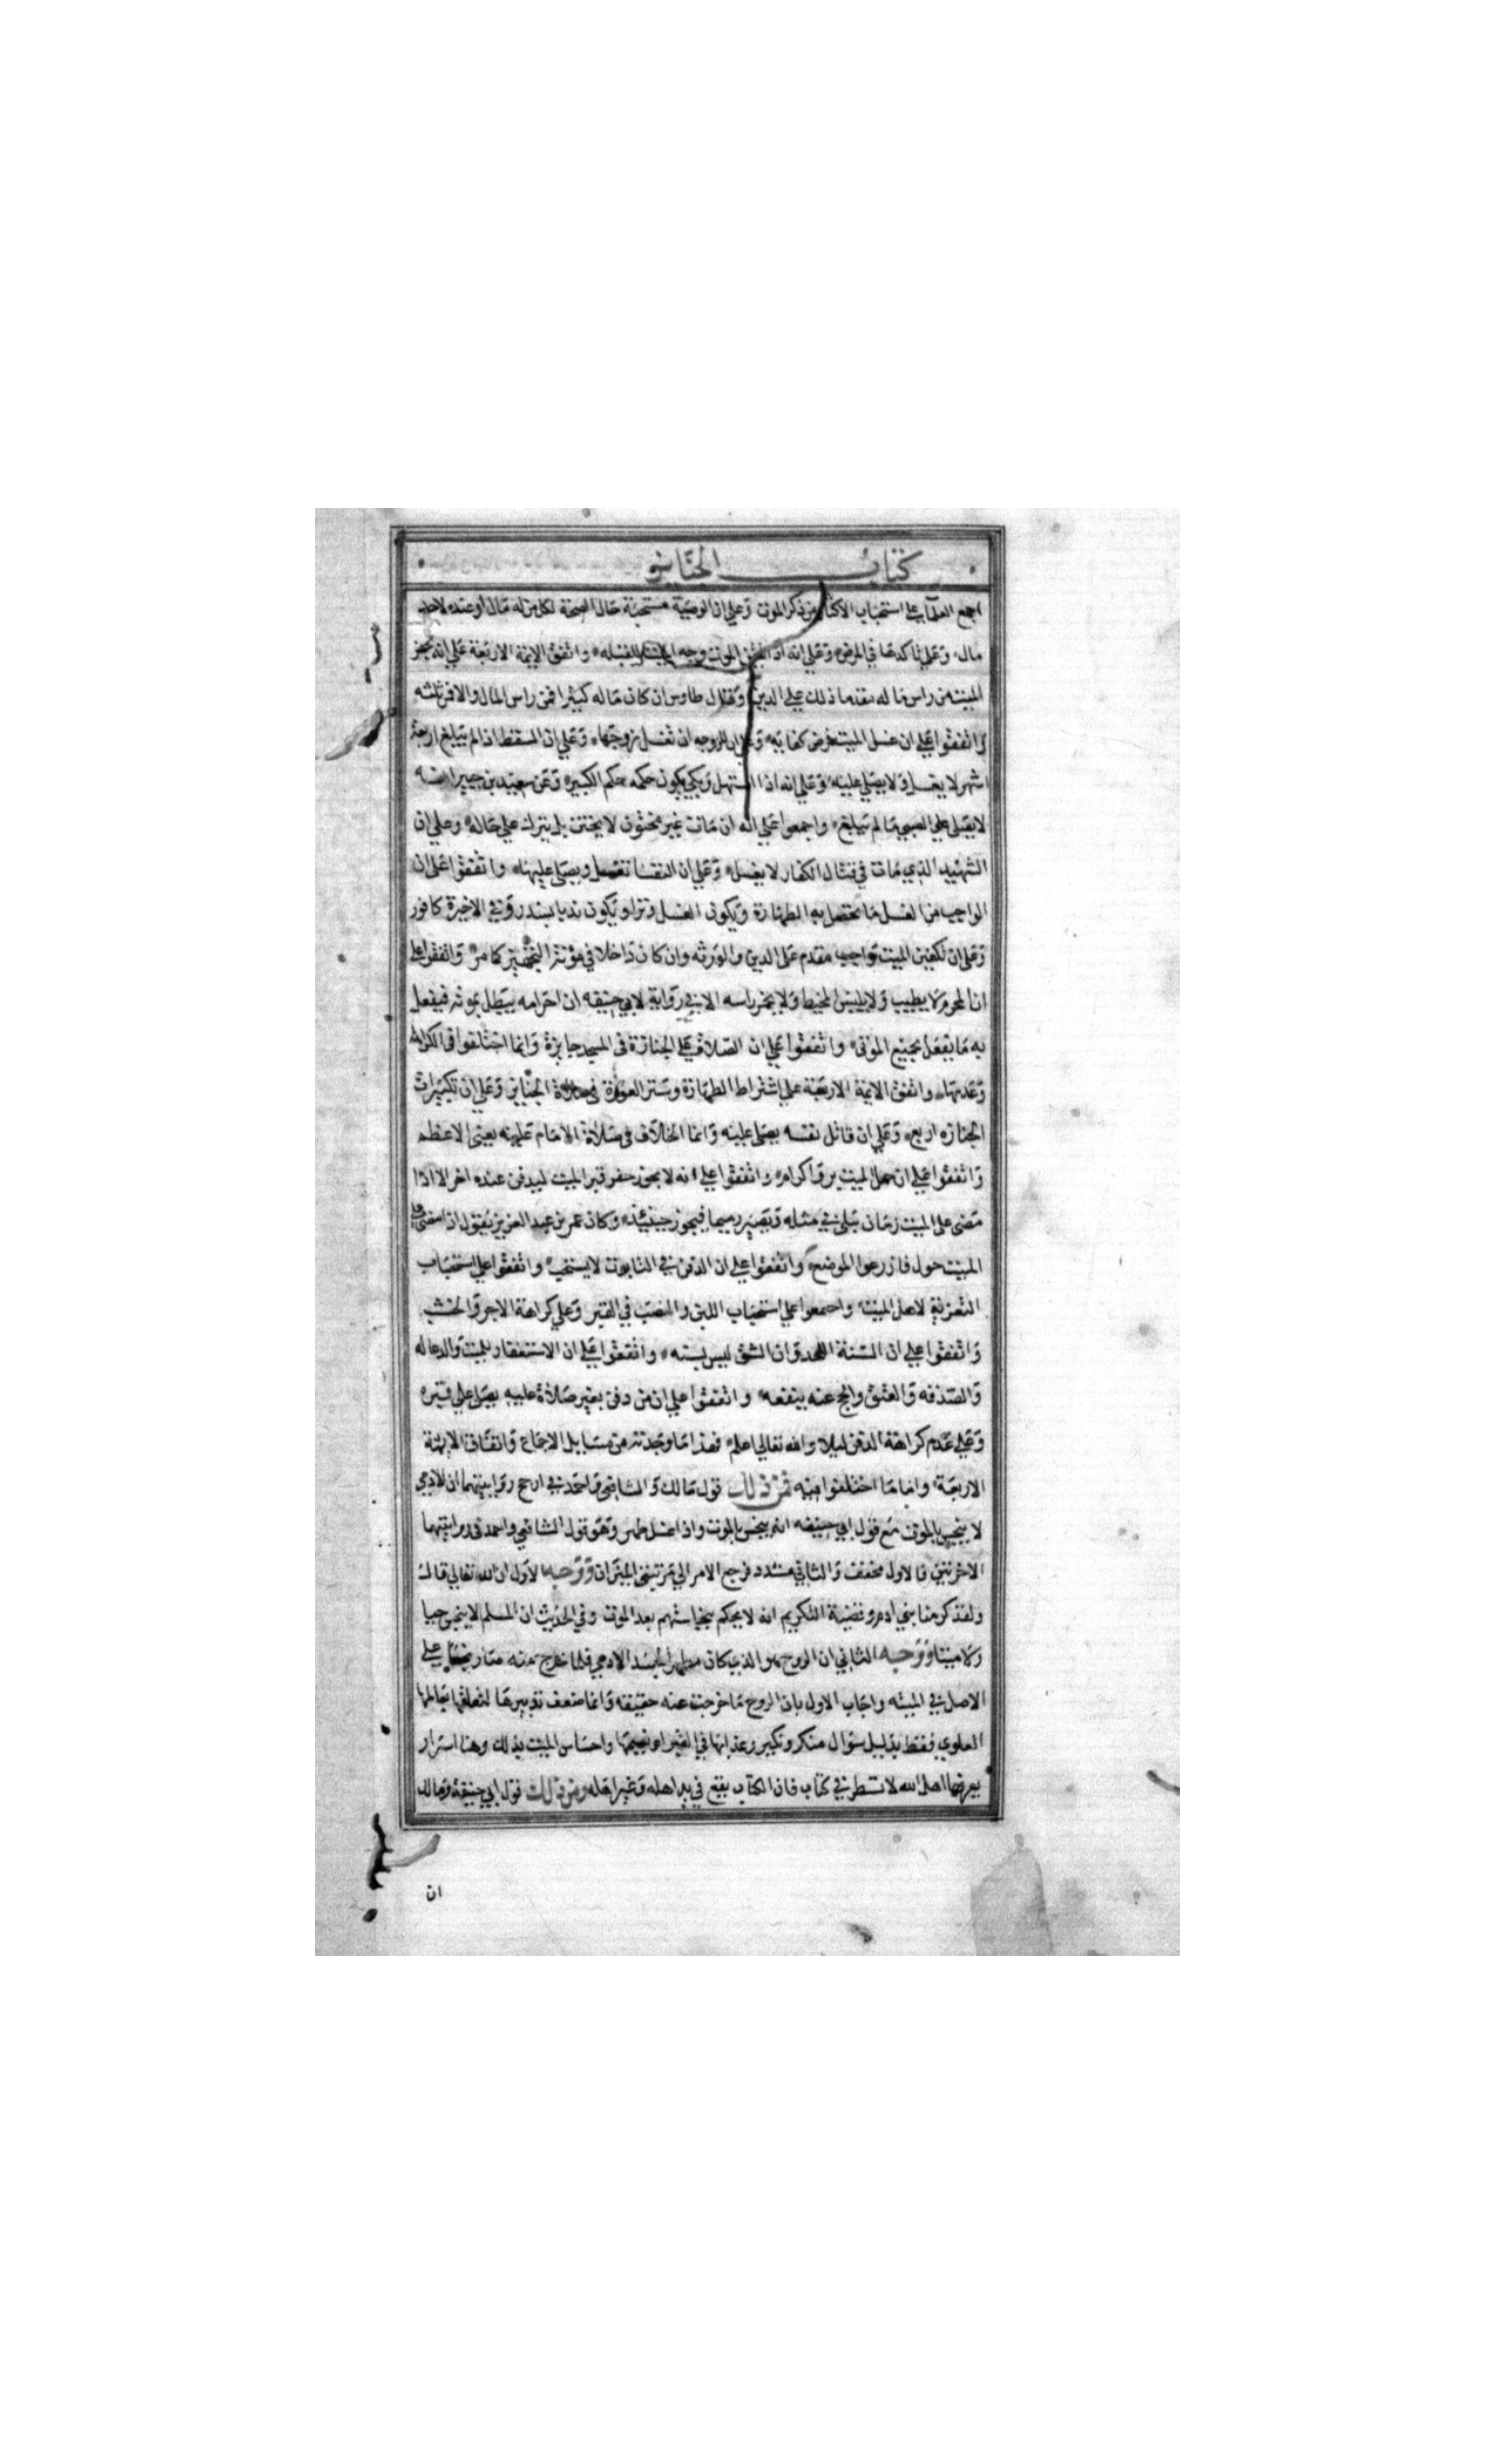 كتاب الجنائز
اجمع العلماء على استحباب الاكثار من ذكر الموت وعلى ان الوصية مستحبة حال الصحة لكل من له مال او عنده لاحد
مال وعلى تاكدها في المرض وعلى انه اذا تيقن الموت وجه الميت للقبله واتفق الايمة الاربعة على انه يجهز
الميت من راس ماله مقدما ذلك على الدين وقال طاوس ان كان ماله كثيرا فمن راس المال والا فمن ثلثه
واتفقوا على ان غسل الميت فرض كفاية وعلى ان للزوجه ان تغسل زوجها وعلى ان السقط اذا لم يبلغ اربعة
اشهر لا يغسل ولا يصلي عليه وعلى انه اذا استهل وبكى يكون حكمه حكم الكبير وعن سعيد بن جبير انه
لا يصلى على الصبي ما لم يبلغ واجمعوا على انه ان مات غير مختون لا يختن بل يترك على حاله وعلى ان
الشهيد الذي مات في قتال الكفار لا يغسل وعلى ان النفسا تغسل ويصلى عليها واتفقوا على ان
الواجب من الغسل ما تحصل به الطهارة ويكون الغسل وترا ويكون ندبا بسدر وفي الاخيرة كافور
وعلى ان تكفين الميت واجب مقدم على الدين والورثه وان كان داخلا في مؤنة التجهيز كما مر واتفقوا على
ان المحرم لا يطيب ولا يلبس المخيط ولا يخمر راسه الا في رواية لابي حنيفه ان احرامه يبطل بموته فيفعل
به ما يفعل بجميع الموتى واتفقوا على ان الصلاة على الجنازة في المسجد جايزة وانما اختلفوا في الكراهة
وعدمها واتفق الايمة الاربعة على اشتراط الطهارة وستر العورة في صلاة الجنايز وعلى ان تكبيرات
الجنازه اربع وعلى ان قاتل نفسه يصلى عليه وانما الخلاف في صلاة الامام عليه يعني الاعظم
واتفقوا على ان حمل الميت بر واكرام واتفقوا على انه لا يجوز حفر قبر الميت ليدفن عنده اخر الا اذا
مضى على الميت زمان يبلى في مثله ويصير رميما فيجوز حينئذ وكان عمر بن عبد العزيز يقول اذا مضى على
الميت حول فازرعوا الموضع واتفقوا على ان الدفن في التابوت لا يستحب واتفقوا على استحباب
التعزية لاهل الميت واجمعوا على استحباب اللبن والقصب في القبر وعلى كراهة الاجر والخشب
واتفقوا على ان السنة اللحد وان الشق ليس بسنه واتفقوا على ان الاستغفار للميت والدعا له
والصدقه والعتق والحج عنه ينفعه واتفقوا على ان من دفن بغير صلاة عليه يصلى على قبره
وعلى عدم كراهة الدفن ليلا والله تعالى اعلم فهذا ما وجدته من مسايل الاجماع واتفاق الايمة
الاربعة واما ما اختلفوا فيه فمن ذلك قول مالك والشافعي واحمد في ارجح روايتيهما ان الادمي
لا ينجس بالموت مع قول ابي حنيفه انه ينجس بالموت واذا غسل طهر وهو قول الشافعي واحمد في روايتيهما
الاخرتين فالاول مخفف والثاني مشدد فرجع الامر الى مرتبتى الميزان ووجه الاول ان الله تعالى قال
ولقد كرمنا بني ادم وقضية التكريم انه لا يحكم بنجاستهم بعد الموت وفي الحديث ان المسلم لا ينجس حيا
ولا ميتا ووجه الثاني ان الروح هو الذي كان مطهرا لجسد الادمي فلما خرج منه صار نجسا على
الاصل في الميته واجاب الاول بان الروح ما خرجت عنه حقيقه وانما ضعف تدبيرها لتعلقها بعالمها
العلوي فقط بدليل سؤال منكر ونكير وعذابها في القبر او نعيمها واحساس الميت بذلك وهنا اسرار
يعرفها اهل الله لا تسطر في كتاب فان الكتاب يقع في يد اهله وغير اهله ومن ذلك قول ابي حنيفة ومالك
ان